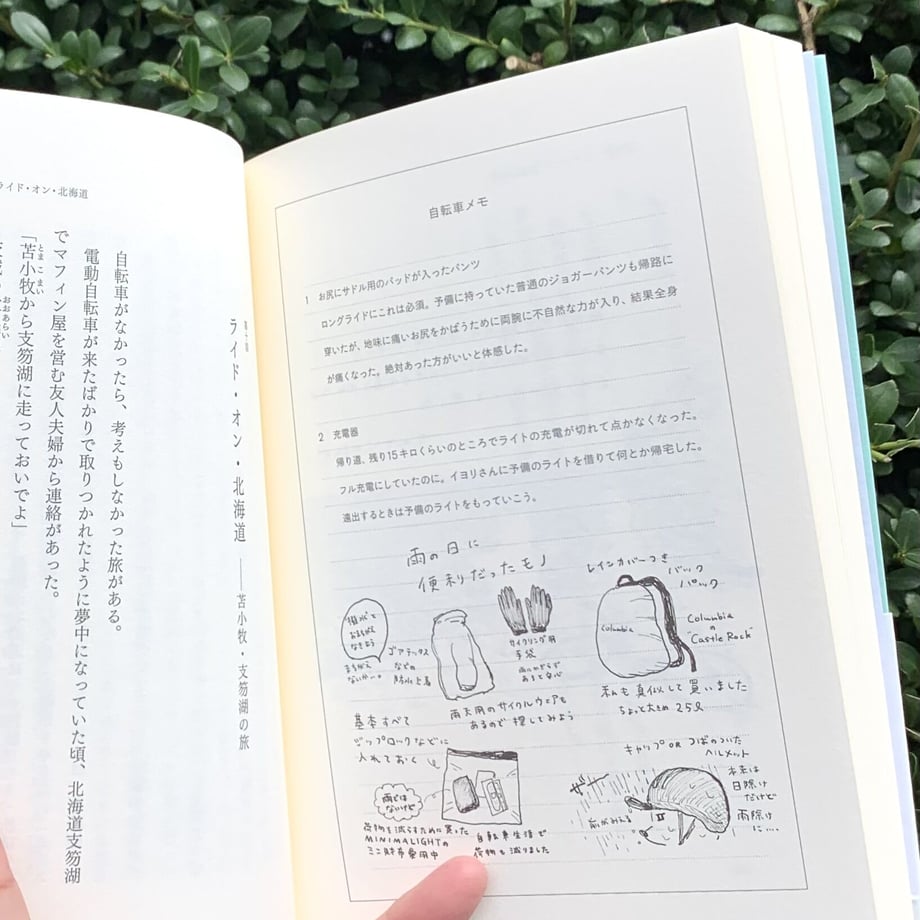 自転車メモ
1 お尻にサドル用のパッドが入ったパンツ
ロングライドにこれは必須。予備に持っていた普通のジョガーパンツも帰路に
穿いたが、地味に痛いお尻をかばうために両腕に不自然な力が入り、結果全身
が痛くなった。絶対あった方がいいと体感した。
2 充電器
帰り道、残り15キロくらいのところでライトの充電が切れて点かなくなった。
フル充電にしていたのに。イヨリさんに予備のライトを借りて何とか帰宅した。
遠出するときは予備のライトをもっていこう。
雨の日に
便利だったモノ
ゴアテックス
などの
防水上着
雨天用のサイクルウェアも
あるので探してみよう
サイクリング用
手袋
雨にかぎらず
あると安心
レインカバーつき
バック
パック
Columbia
Columbia
の
"Castle Rock"
私も真似して買いました
ちょっと大きめ 25ℓ
基本すべて
ジップロックなどに
入れておく
雨では
ないけど
荷物を減らすために買った
MINIMALIGHTの
ミニ財布愛用中
自転車生活で
荷物も減りました
キャップ OR つばのついた
ヘルメット
ザー
前がみえる
本来は
日除け
だけど
雨除け
に…
ライド・オン・北海道
ライド・オン・北海道――苫小牧・支笏湖の旅
自転車がなかったら、考えもしなかった旅がある。
電動自転車が来たばかりで取りつかれたように夢中になっていた頃、北海道支笏湖
でマフィン屋を営む友人夫婦から連絡があった。
「苫小牧から支笏湖に走っておいでよ」
とまこまい
おおあらい